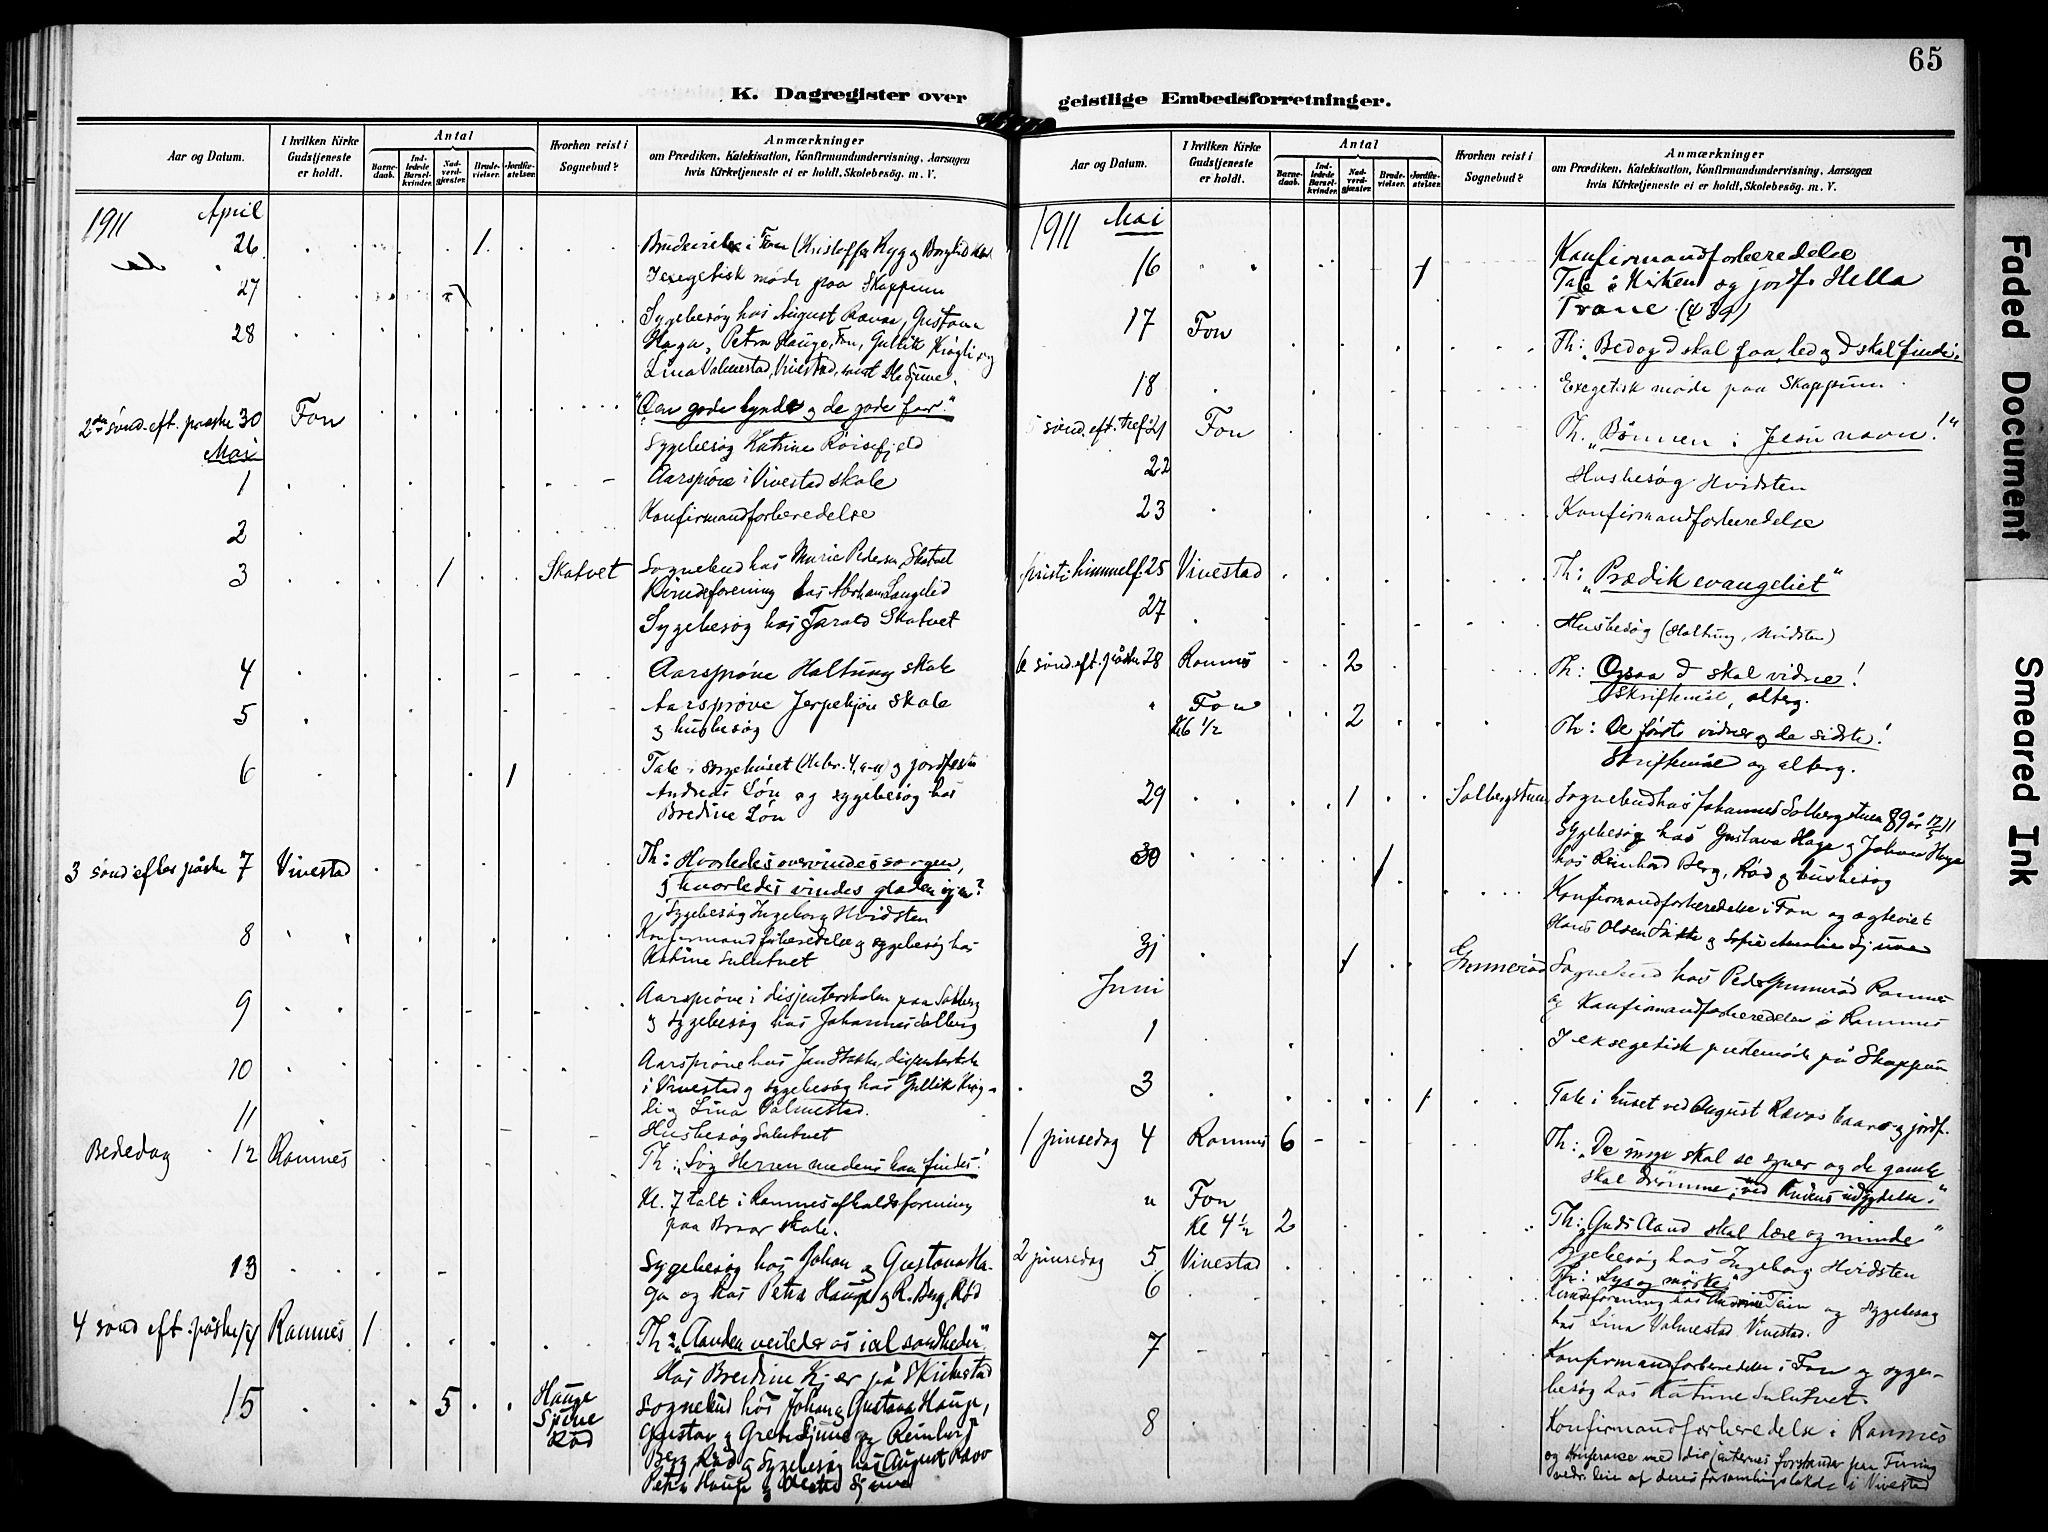 65
K. Dagregister over
geistlige Embedsforretninger.
Aar og Datum.
I hvilken Kirke Gudstjeneste er holdt.
Antal
Barnedaab.
Indledede Barselkvinder.
Nadverdgjæster.
Brudevielser.
Jordfæstelser.
Hvorhen reist i Sognebud?
Anmærkninger
om Prædiken, Katekisation, Konfirmandundervisning, Aarsagen
hvis Kirketjeneste ei er holdt, Skolebesøg. m. V.
1911 April
26 1 Brudevielse i Fon (Kristoffer Ryg og
27 1 I exegetisk møde paa Skoppum
28 Sygebesøg hos August Ravaa, Gustava
Haga, Petra Hauge, Fon, Gullik Krøgli og
Lina Valmestad, Vivestad, samt
2den sønd. eft. påske 30 Fon "Den gode hynde og de gode far."
Sygebesøg Katrine
Mai
1 Aarsprøve i Vivestad skole
2 Konfirmandforberedelse
3 1 Skatvet Sognebud hos Marie Pedersen Skatvet
Kvindeforening hos Abraham Langelid
Sygebesøg hos Tarald Skatvet
4 Aarsprøve Haltung skole
5 Aarsprøve Jerpekjøn skole
og husbesøg
6 1 Tale i sørgehuset (Hebr. 4, 9-11) og jordfæstn
Andreas Løn og sygebesøg hos
Bredine Løn
3 sønd efter påske 7 Vivestad Th: Hvorledes overvindes sorgen,
og hvorledes vindes glæden igjen?
Sygebesøg Ingeborg Hvidsten
8 Konfirmandforberedelse og sygebesøg hos
Katrine Sulutvet
9 Aarsprøve i disjenterskolen paa Solberg
og sygebesøg hos Johannes Solberg
10 Aarsprøve hos Jan Stokke, disjenterskole
i Vivestad og sygebesøg hos Gullik Krøg-
li og Lina Valmestad.
11 Husbesøg Sulutvet
Bededag 12 Ramnes Th: "Søg Herren medens han findes!"
Kl. 7 talt i Ramnes afholdsforening
paa Braar skole.
13 Sygebesøg hos Johan og Gustava Ha-
ga og hos Petra Hauge og R. Berg, Rød
4 sønd eft. påske 14 Ramnes 1 Th: "Aanden veileder os i al sandheden"
Hos Bredine Kjær på Skirkestad
15 5 Hauge Sjune Rød Sognebud hos Johan og Gustava Hauge,
Gustav og Grete Sjune og Reinhard
Berg Rød og Sygebesøg hos August Ravo
Petra Hauge og
Aar og Datum.
I hvilken Kirke Gudstjeneste er holdt.
Antal
Barnedaab.
Indledede Barselkvinder.
Nadverdgjæster.
Brudevielser.
Jordfæstelser.
Hvorhen reist i Sognebud?
Anmærkninger
om Prædiken, Katekisation, Konfirmandundervisning, Aarsagen
hvis Kirketjeneste ei er holdt, Skolebesøg. m. V.
1911 Mai
16 1 Konfirmandforberedelse
Tale i Kirken og jordf. Hella
Trane
17 Fon Th: "Bed og I skal faa, led og I skal finde".
18 Exegetisk møde paa Skoppum.
5 sønd. eft. 21 Fon Th. "Bønnen i Jesu navn!"
22 Husbesøg Hvidsten
23 Konfirmandforberedelse
Kristi himmelf. 25 Vivestad Th: "Prædik evangeliet"
27 Husbesøg (Haltung, Hvidsten)
6 sønd. eft. påske 28 Ramnes 2 Th: Ogsaa I skal vidne!
Skriftemål, alterg.
" Fon kl 6 1/2 2 Th: De første vidner og de sidste!
Skriftemål og alterg.
29 1 Solbergstuen Sognebud hos Johannes Solbergstuen 89 år
Sygebesøg hos Gustava Haga og Johan Haga
30 1 hos Reinhard Berg, Rød og husbesøg
Konfirmandforberedelse i Fon og ægteviet
Hans Olsen og Sofie Amalie Sjune
31 1 Gunnerød Sognebud hos Peder Gunnerød Ramnes
og Konfirmandforberedelse i Ramnes
Juni
1 I eksegetisk præstemøde på Skoppum
3 1 Tale i huset ved August Ravos baare og jordf.
1 pinsedag 4 Ramnes 6 Th: "De unge skal se syner og de gamle
skal drømme, ved Aandens udgydelse."
" Fon Kl 4 1/2 2 Th: "Guds Aand skal lære og minde"
Sygebesøg hos Ingeborg Hvidsten
2 pinsedag 5 Vivestad Th: "Lys og mørke"
6 Kvindeforening hos og sygebesøg
hos Lina Valmestad Vivestad.
7 Konfirmandforberedelse i Fon og syge-
besøg hos Katrine Sulutvet.
8 Konfirmandforberedelse i Ramnes
og Konferanse med disjenternes forstander
af deres forsamlingslokale i Vivestad
Faded Document
Smeared Ink